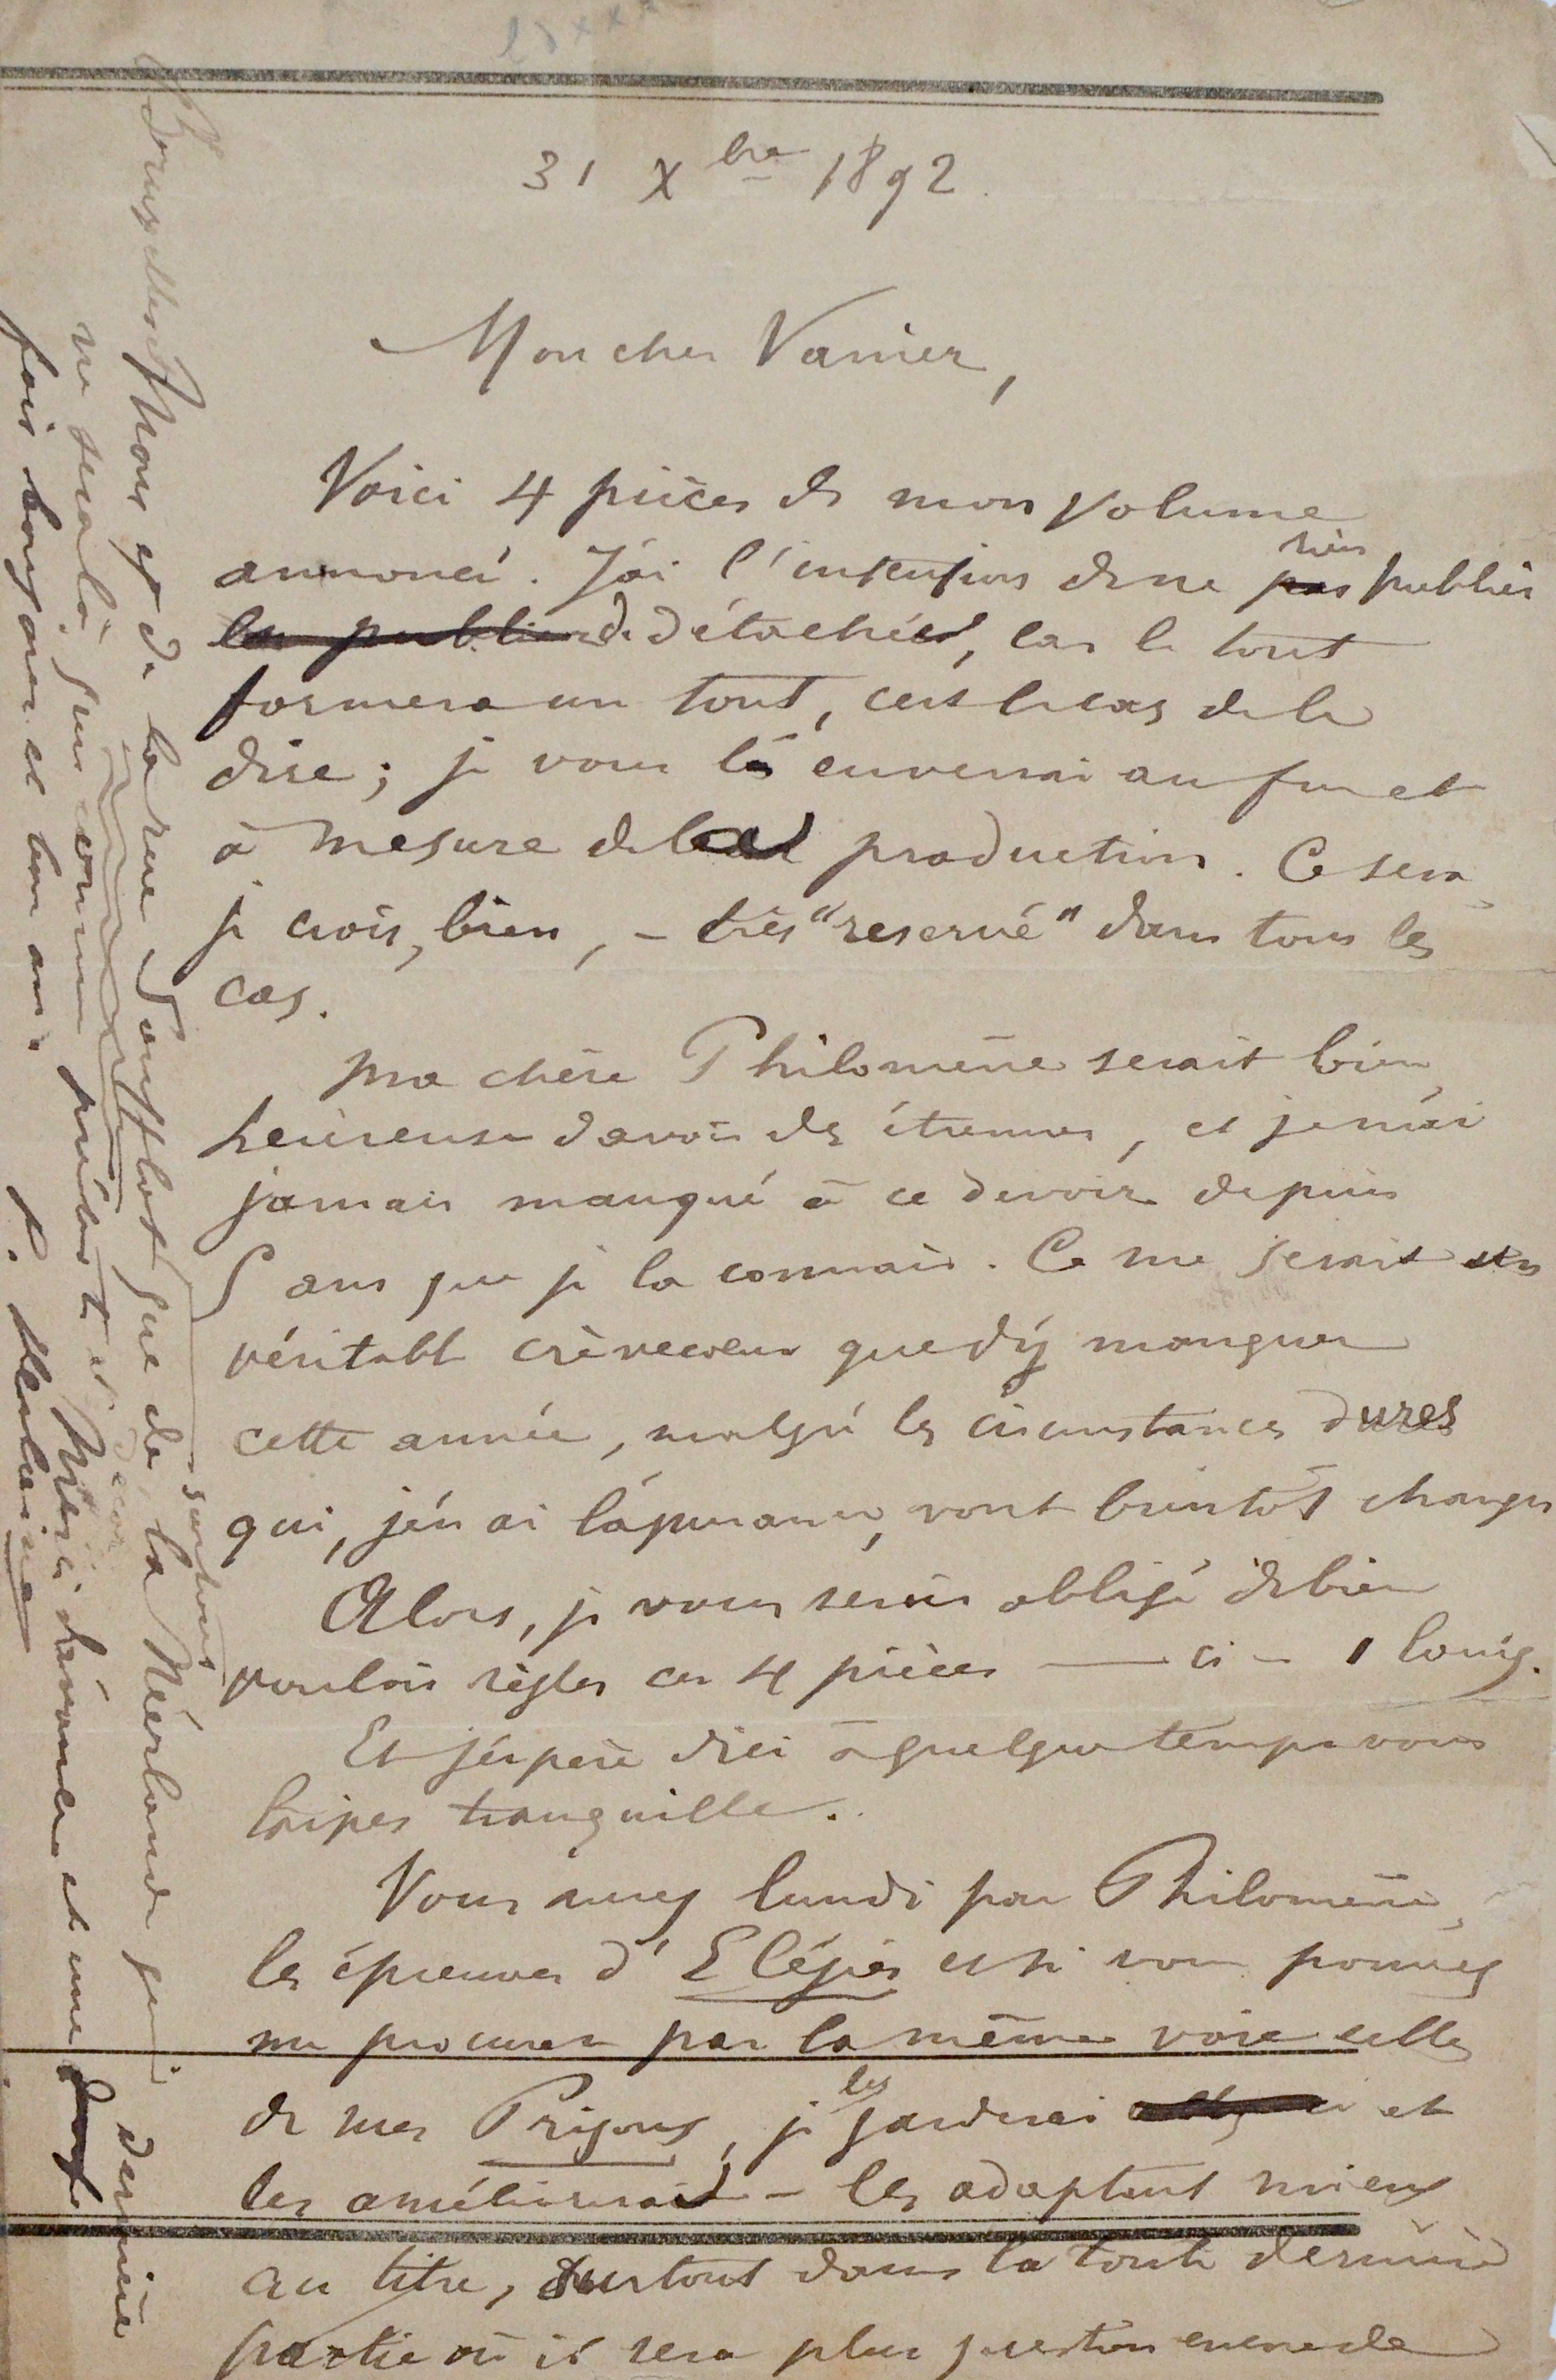 31 Xbre 1892.
Mon cher Vanier,
Voici 4 pièces de mon volume
annoncé. J'ai l'intention de ne pas rien publier
les publier de détachées, car le tout
formera un tout, c'est le cas de le
dire ; je vous les enverrai au fur et
à mesure de la production. Ce sera
je crois, bien, – très "reservé" dans tous les
cas.
Ma chère Philomène serait bien
heureuse d'avoir des étrennes, et je n'ai
jamais manqué à ce devoir depuis
5 ans que je la connais. Ce me serait un
véritable crèvecoeur que d'y manquer
cette année, malgré les circonstances dures
qui, j'en ai l'espérance, vont bientôt changer
Alors, je vous serais obligé de bien
vouloir régler ces 4 pièces — ci – 1 louis.
Et j'espère d'ici à quelque temps vous
laisser tranquille.
Vous aurez lundi par Philomène,
les épreuves d'Elégies et si vous pouviez
me procurer par la même voie celles
de mes Prisons, je les garderai et
les améliorerais – les adaptant mieux
au titre, surtout dans la toute dernière
partie où il sera plus question encore de
Bruxelles, Mons et de la rue Soufflot que de la Néerlande qui dernière
ne sera là que comme prélude et décor surtout. Merci d'avance et une
fois bonjour et bon an.
P. Verlaine